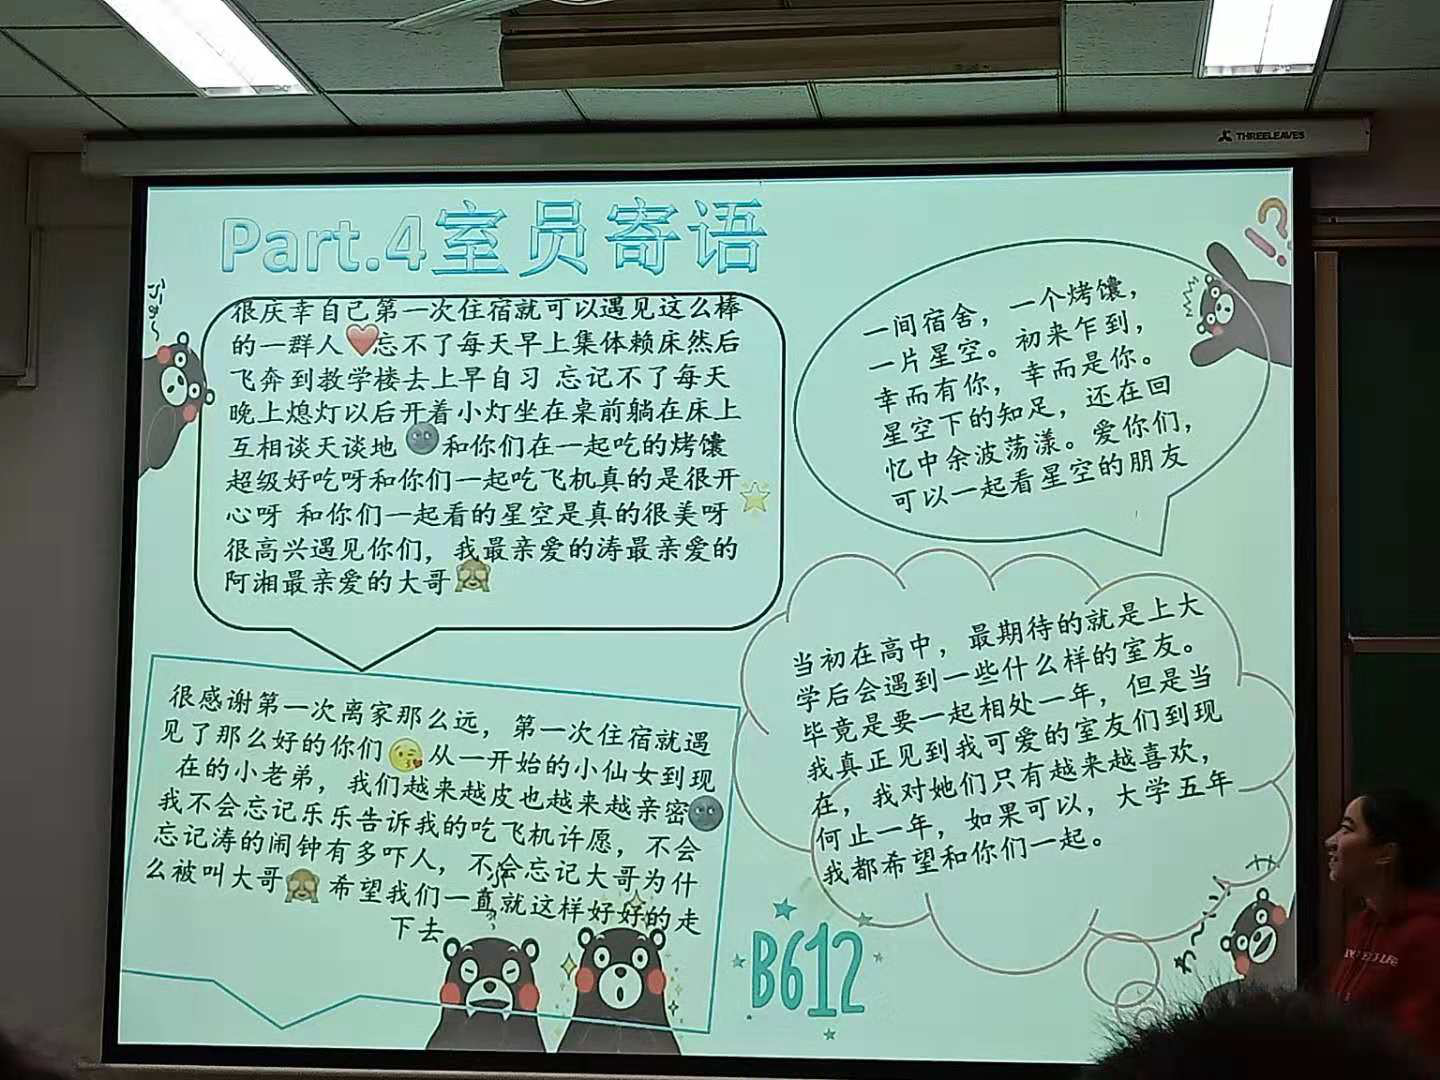 THREELEAVES
Part.4室员寄语
很庆幸自己第一次住宿就可以遇见这么棒
的一群人❤️忘不了每天早上集体赖床然后
飞奔到教学楼去上早自习 忘记不了每天
晚上熄灯以后开着小灯坐在桌前躺在床上
互相谈天谈地🌚和你们在一起吃的烤馕
超级好吃呀和你们一起吃飞机真的是很开
心呀 和你们一起看的星空是真的很美呀
很高兴遇见你们，我最亲爱的涛最亲爱的
阿湘最亲爱的大哥🙈
一间宿舍，一个烤馕，
一片星空。初来乍到，
幸而有你，幸而是你。
星空下的知足，还在回
忆中余波荡漾。爱你们，
可以一起看星空的朋友
很感谢第一次离家那么远，第一次住宿就遇
见了那么好的你们😘从一开始的小仙女到现
在的小老弟，我们越来越皮也越来越亲密🌚
我不会忘记乐乐告诉我的吃飞机许愿，不会
忘记涛的闹钟有多吓人，不会忘记大哥为什
么被叫大哥🙈 希望我们一直就这样好好的走
下去
当初在高中，最期待的就是上大
学后会遇到一些什么样的室友。
毕竟是要一起相处一年，但是当
我真正见到我可爱的室友们到现
在，我对她们只有越来越喜欢，
何止一年，如果可以，大学五年
我都希望和你们一起。
B612